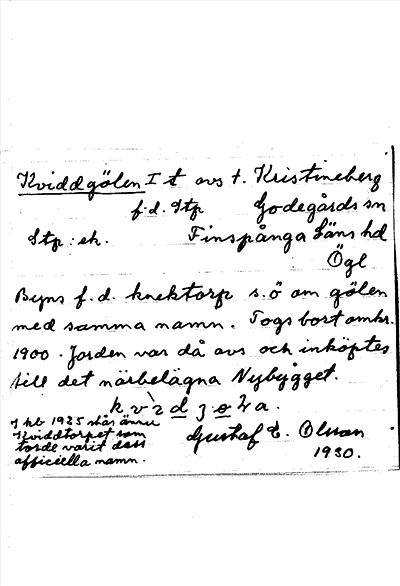 Kviddgölen I t avs t. Kristineberg
f.d. Stp Godegårds sn
Stp: ek. Finspånga Läns hd
Ögl
Byns f.d. knektorp s.ö om gölen
med samma namn. Togs bort omkr.
1900. Jorden var då avs och inköptes
till det närbelägna Nybygget.
kvìdʒɵɫa.
I kb 1925 står ännu
Kviddtorpet som
torde varit dess
officiella namn.
Gustaf E. Olsson
1930.